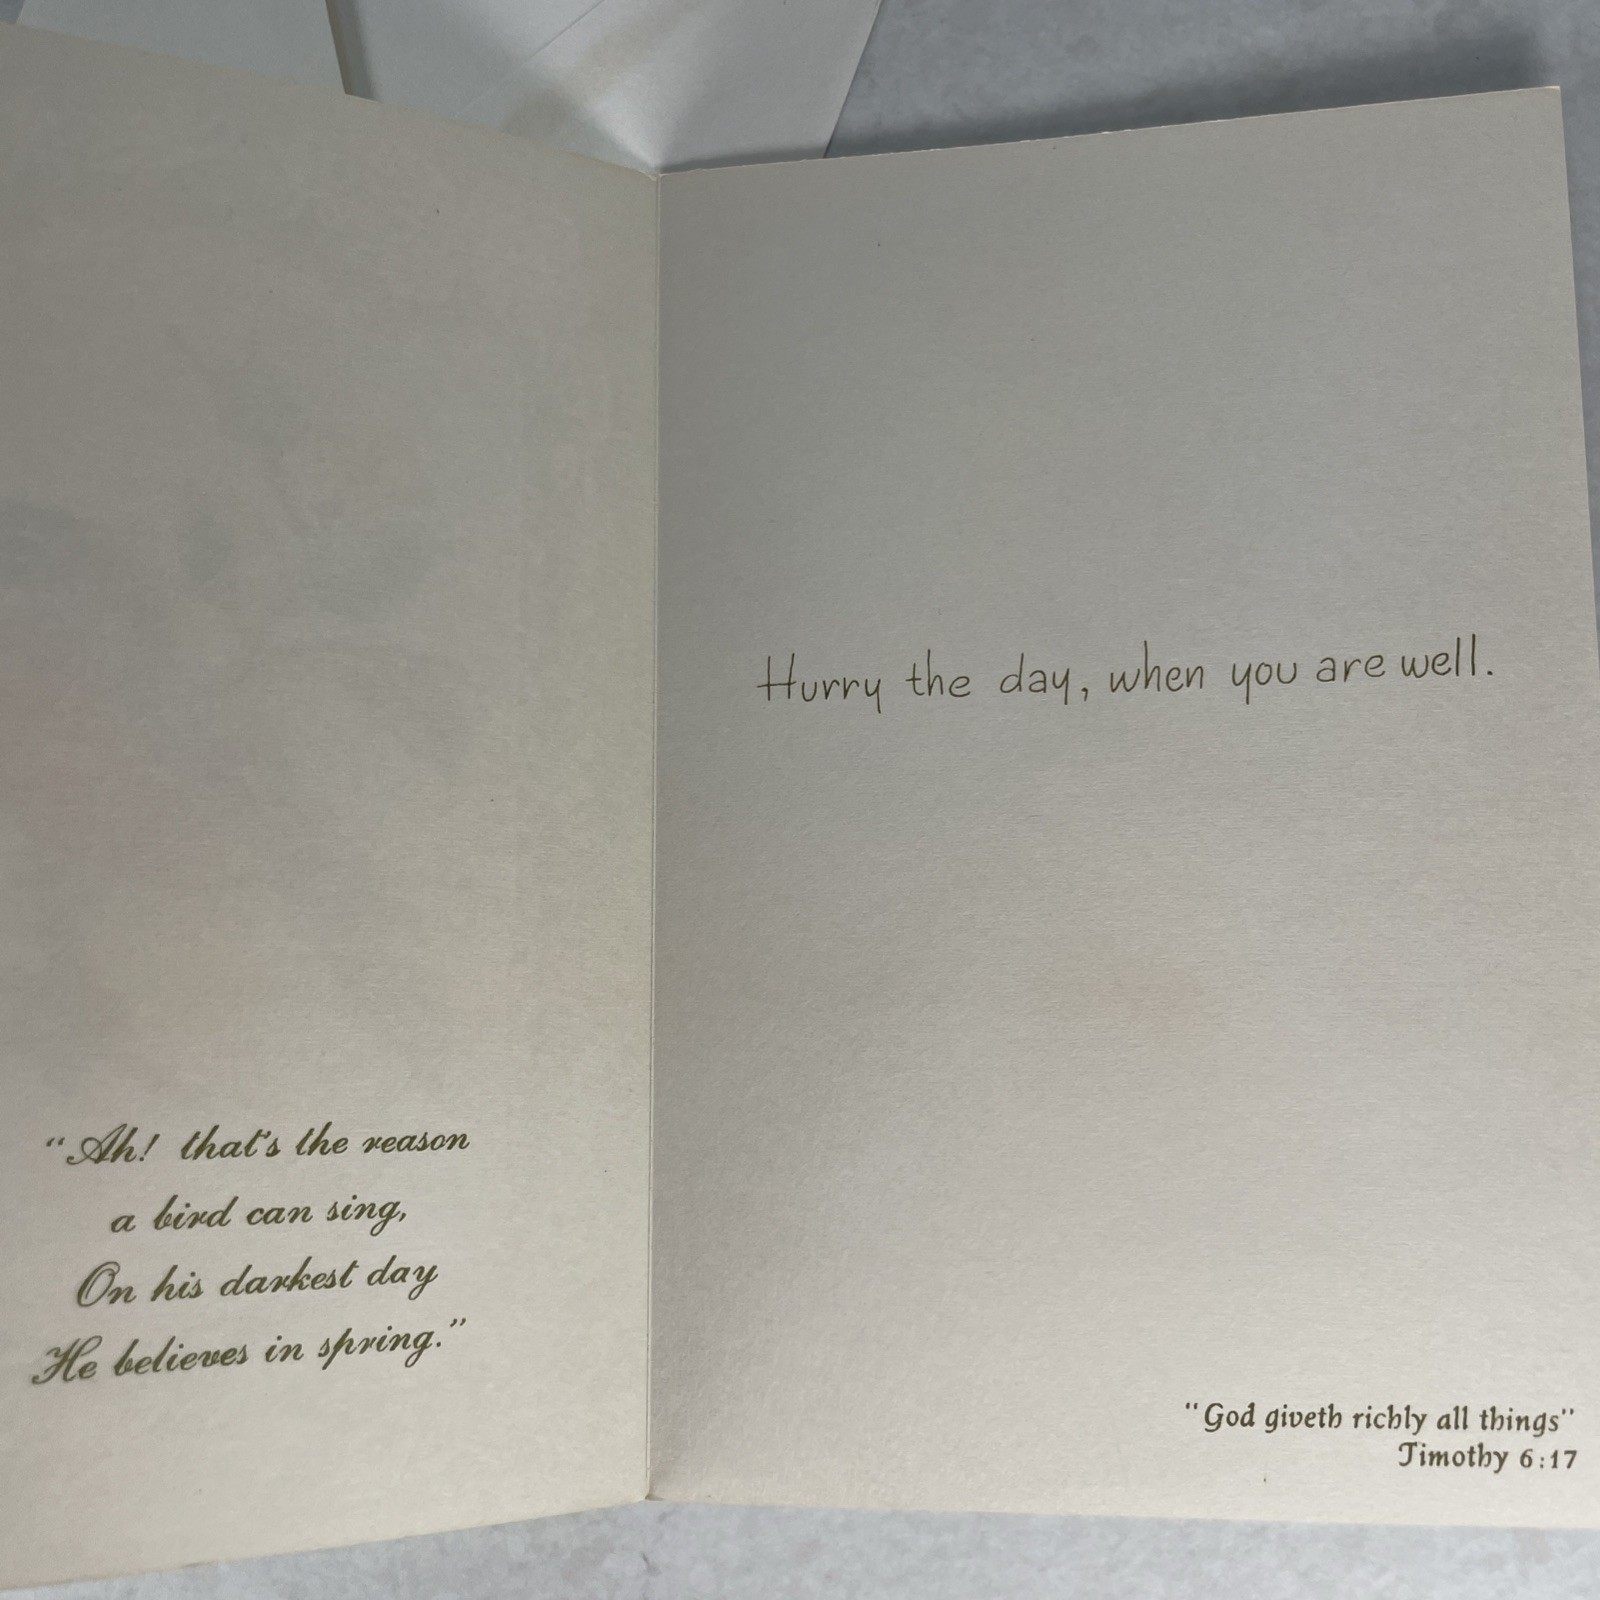 “Ah! that's the reason
a bird can sing,
On his darkest day
He believes in spring.”
Hurry the day, when you are well.
"God giveth richly all things"
Timothy 6:17